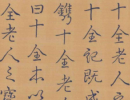 十全老人
十全記既成
鐫十全老
曰十全本以
全老人之寶